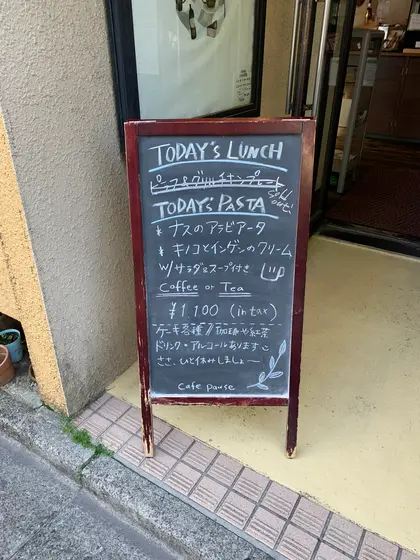 TODAY'S LUNCH
ピラフ&グリルチキンプレート
Sold out!
TODAY'S PASTA
* ナスのアラビアータ
* キノコとインゲンのクリーム
W/サラダ&スープ付き
Coffee or Tea
¥1100 (in tax)
ケーキ各種、珈琲や紅茶
ドリンク・アルコールあります
ささ、ひと休みしましょ〜
Cafe pause